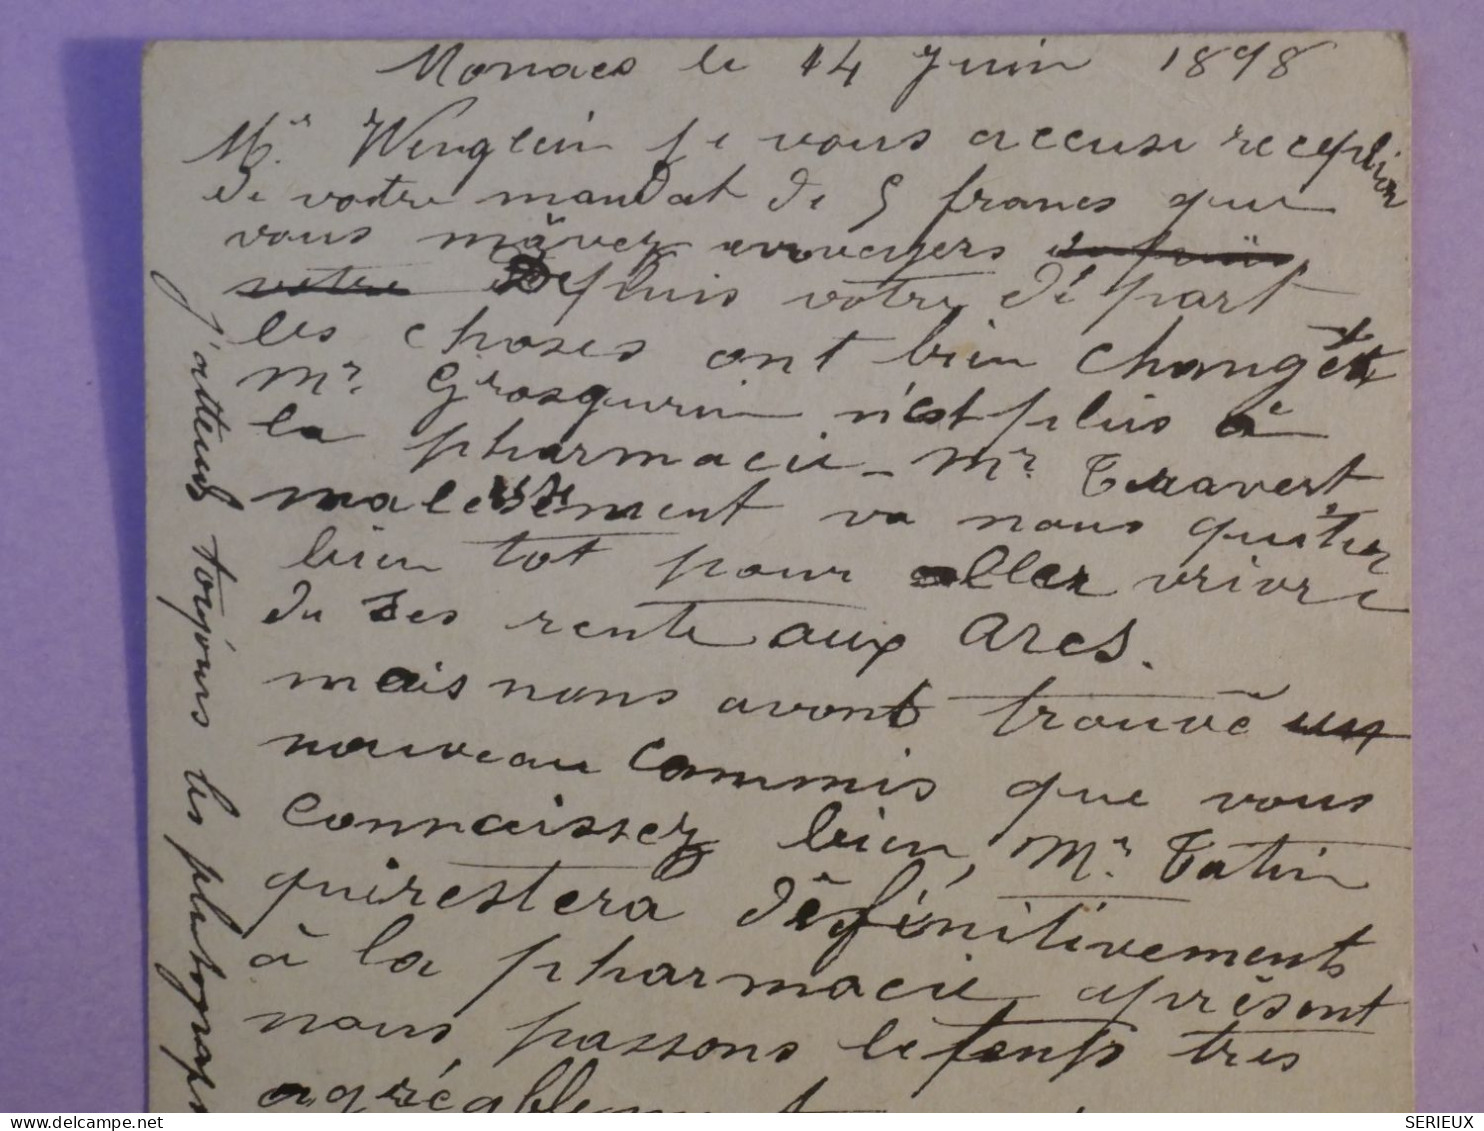 Monaco le 14 Juin 1898
Mr. Wenglein je vous accuse reception
de votre mandat de 5 francs que
vous mâvez envoyers depuis
votre Depluis votre départ
les choses ont bien changét
Mr. Grosgurin n'est plus a
la pharmacie - Mr. Travert,
malessement va nous quitier
bien tot pour aller vrivre
du ses rente aux Arcs.
mais nous avont trouvé un
nouveau commis que vous
connaissez bien, Mr. Tatin
qui restera définitivements
à la pharmacie, aprèsent
nous passons le temps tres
agréablement
j'atteus toujours les plutograp
SERIEUX